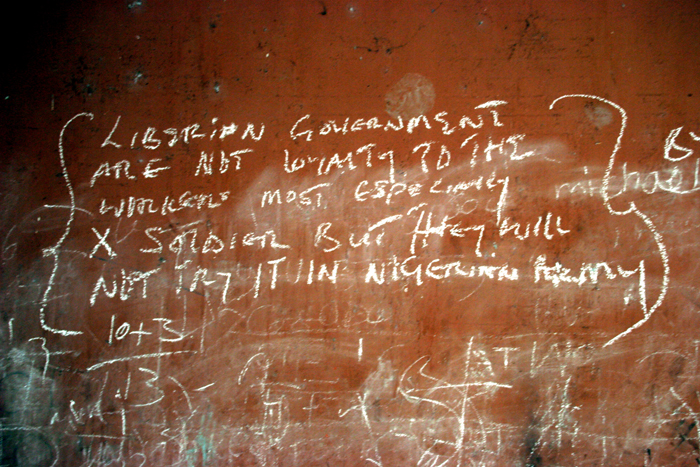 LIBERIAN GOVERNMENT
ARE NOT LOYALTY TO THE
WORKERS MOST ESPECIALLY
X SOLDIER BUT THEY WILL
NOT TRY IT IN NIGERIAN ARMY
michael
10+3
13